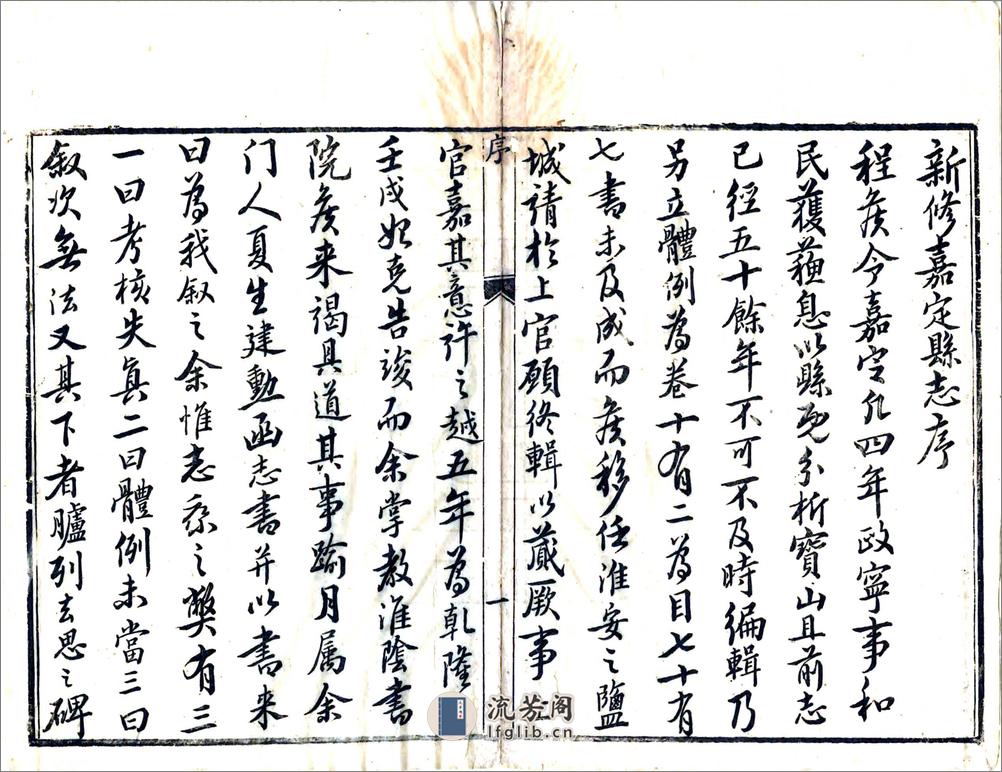 新修嘉定縣志序
程侯令嘉定凡四年政寧事和
民獲蘓息以縣既分析寶山且前志
已經五十餘年不可不及時編輯乃
另立體例為卷十有二為目七十有
七書未及成而侯移任淮安之鹽
城請於上官願終輯以蕆厥事上
序
一
官嘉其意許之越五年為乾隆
壬戌始克告竣而余掌教淮陰書
院侯来謁具道其事踰月属余
門人夏生建勳函志書并以書来
曰為我叙之余惟志乘之獘有三
一曰考核失真二曰體例未當三曰
叙次無法又其下者臚列去思之碑
流芳阁
lfglib.cn